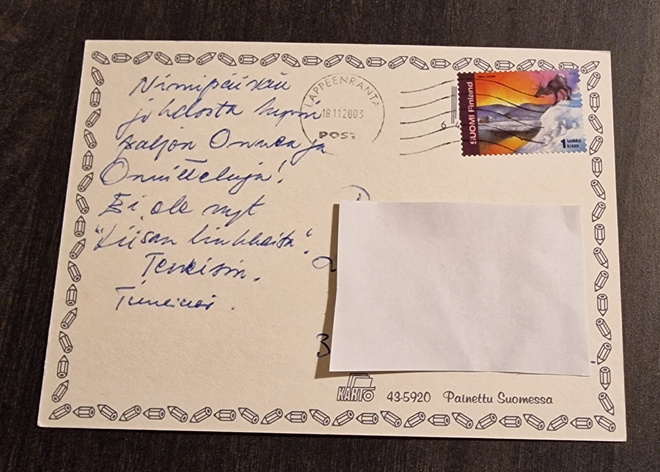 Nimipäivän
johdosta
paljon Onnea ja
Onnitteluja!
Ei ole nyt
"Liisan liukkaita".
Terveisin.
LAPPEENRANTA
18.11.2003
POST
SUOMI Finland
1 luokka
klass
KARTO 43-5920 Painettu Suomessa